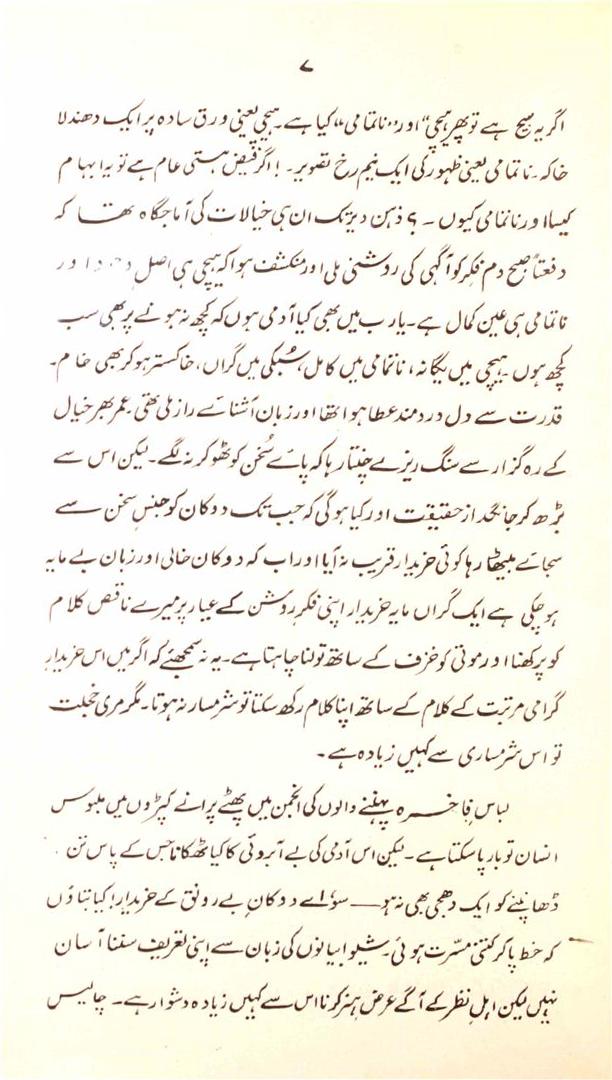 ۷
اگر یہ صحیح ہے تو پھر ہیچی" اور "ناتمامی" کیا ہے۔ ہیچی یعنی ورق سادہ پر ایک دھندلا
خاکہ۔ ناتمامی یعنی ظہور کی ایک نیم رخ تصویر۔ ! اگر فیض ہستی عام ہے تو یہ ابہام
کیسا اور ناتمامی کیوں ۔ ؟ ذہن دیر تک ان ہی خیالات کی آماجگاہ تھا کہ
دفعتاً صبح دم فکر کو آگہی کی روشنی ملی اور منکشف ہوا کہ ہیچی ہی اصل اور
ناتمامی ہی عین کمال ہے۔ یارب میں بھی کیا آدمی ہوں کہ کچھ نہ ہونے پر بھی سب
کچھ ہوں۔ ہیچی میں یگانہ، ناتمامی میں کامل، سُبکی میں گراں، خاکستر ہو کر بھی خام۔
قدرت سے دل دردمند عطا ہوا تھا اور زبان آشنائے راز ملی تھی۔ عمر بھر خیال
کے رہ گزار سے سنگ ریزے چنتا رہا کہ پائے سُخن کو ٹھوکر نہ لگے۔ لیکن اس سے
بڑھ کر جانگداز حقیقت اور کیا ہوگی کہ جب تک دوکان کو جنسِ سخن سے
سجائے بیٹھا رہا کوئی خریدار قریب نہ آیا اور اب کہ دوکان خالی اور زبان بے مایہ
ہوچکی ہے ایک گراں مایہ خریدار اپنی فکرِ روشن کے عیار پر میرے ناقص کلام
کو پرکھنا اور موتی کو خزف کے ساتھ تولنا چاہتا ہے۔ یہ نہ سمجھئے کہ اگر میں اس خریدارِ
گرامی مرتبت کے کلام کے ساتھ اپنا کلام رکھ سکتا تو شرمسار نہ ہوتا۔ مگر مری خجلت
تو اس شرمساری سے کہیں زیادہ ہے۔
لباسِ فاخرہ پہننے والوں کی انجمن میں پھٹے پرانے کپڑوں میں ملبوس
انسان تو بار پاسکتا ہے۔ لیکن اس آدمی کی بے آبروئی کا کیا ٹھکانا جس کے پاس تن
ڈھانپنے کو ایک دھجی بھی نہ ہو — سوائے دوکانِ بے رونق کے خریدار! کیا بتاؤں
کہ خط پاکر کتنی مسّرت ہوئی۔ شیوا بیانوں کی زبان سے اپنی تعریف سننا آسان
نہیں لیکن اہلِ نظر کے آگے عرض ہنر کرنا اس سے کہیں زیادہ دشوار ہے۔ چالیس